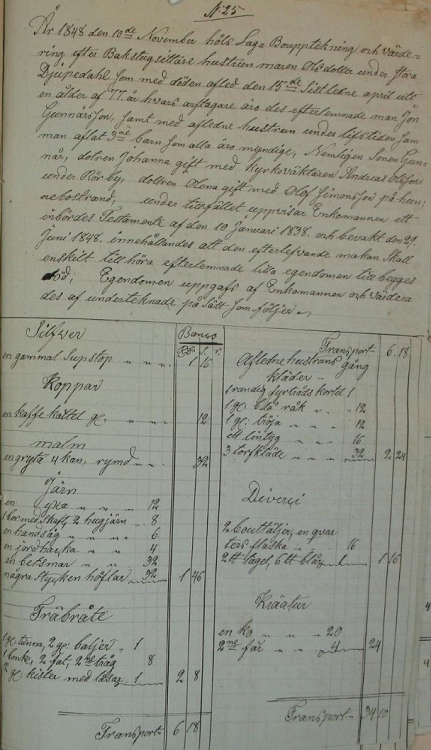 N 25
År 1848 den 10de November hölls Laga Bouppteckning och värde=
ring efter Bakstugsittare hustrun maren Olsdotter under Stora
Djupedahl som med döden afled den 15de Sistledne april uti
en ålder af 77 år hvars arftagare äro des efterlemnade man Jon
Gunnarsson, samt med afledne hustrun under lifstiden sam=
man aflat 3ne barn som alla äro myndige, Nemligen Sonen Gun=
nar, dotren Johanna gift med kyrkoväktaren Andreas Olsson
under Rör by, dottren Olena gift med Olof Simonsson på hun=
nebostrand, under tilfället uppvisar Enkomannen ett
inbördes Testamente af den 10 Januari 1838. och bevakt den 29
Juni 1848. innehållandes att den efterlefvande makan skall
enskilt till höra efterlemnade lilla egendomen till begges
död; Egendomen uppgafs af Enkomannen och värdera
des af undertecknade på sätt som följer
Silfver
Banco
en gammal Supstop 1 16
Koppar
en kaffe kittel 12
malm
en gryta 4 kan. rymd 32
Järn
en yxa 12
1 bor med skaft, 2 huggjärn 8
en handsåg 6
en jordhacka 4
en betsmar 32
några stycken höflar 32 1 46
Träbråte
1 st tunna, 2 st baljer 1
1 bonke, 2 fat, 2ne tråg 8
2 st kistor med låsar 1 2 8
Transport 6 18
Transport 6 18
Afledne hustruns gång
kläder
1 randig fyrtråds kortel 1
1 st blå råk 12
1 st tröja 12
ett lintyg 16
3 torfkläde 32 2 24
Diversi
2 bouttäljor, en qvar
ters flaska 16
1 1 16
Kreatur
en ko 20
2ne får 4 24
Transport 34 10